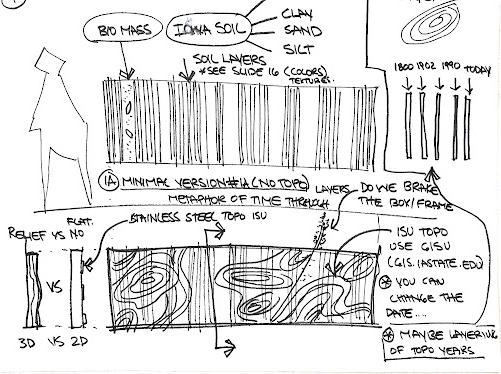 BIO MASS
IOWA SOIL
CLAY
SAND
SILT
SOIL LAYERS
*SEE SLIDE 16 (COLORS)
TEXTURES.
1800 1902 1990 TODAY
1A MINIMAL VERSION #1A (NO TOPO)
METAPHOR OF TIME THROUGH LAYERS
DO WE BRAKE
THE BOX/FRAME
STAINLESS STEEL TOPO ISU
FLAT.
RELIEF VS NO
VS
3D VS 2D
ISU TOPO
USE GISU
(GIS.IASTATE.EDU)
* YOU CAN
CHANGE THE
DATE....
* MAYBE LAYERING
OF TOPO YEARS